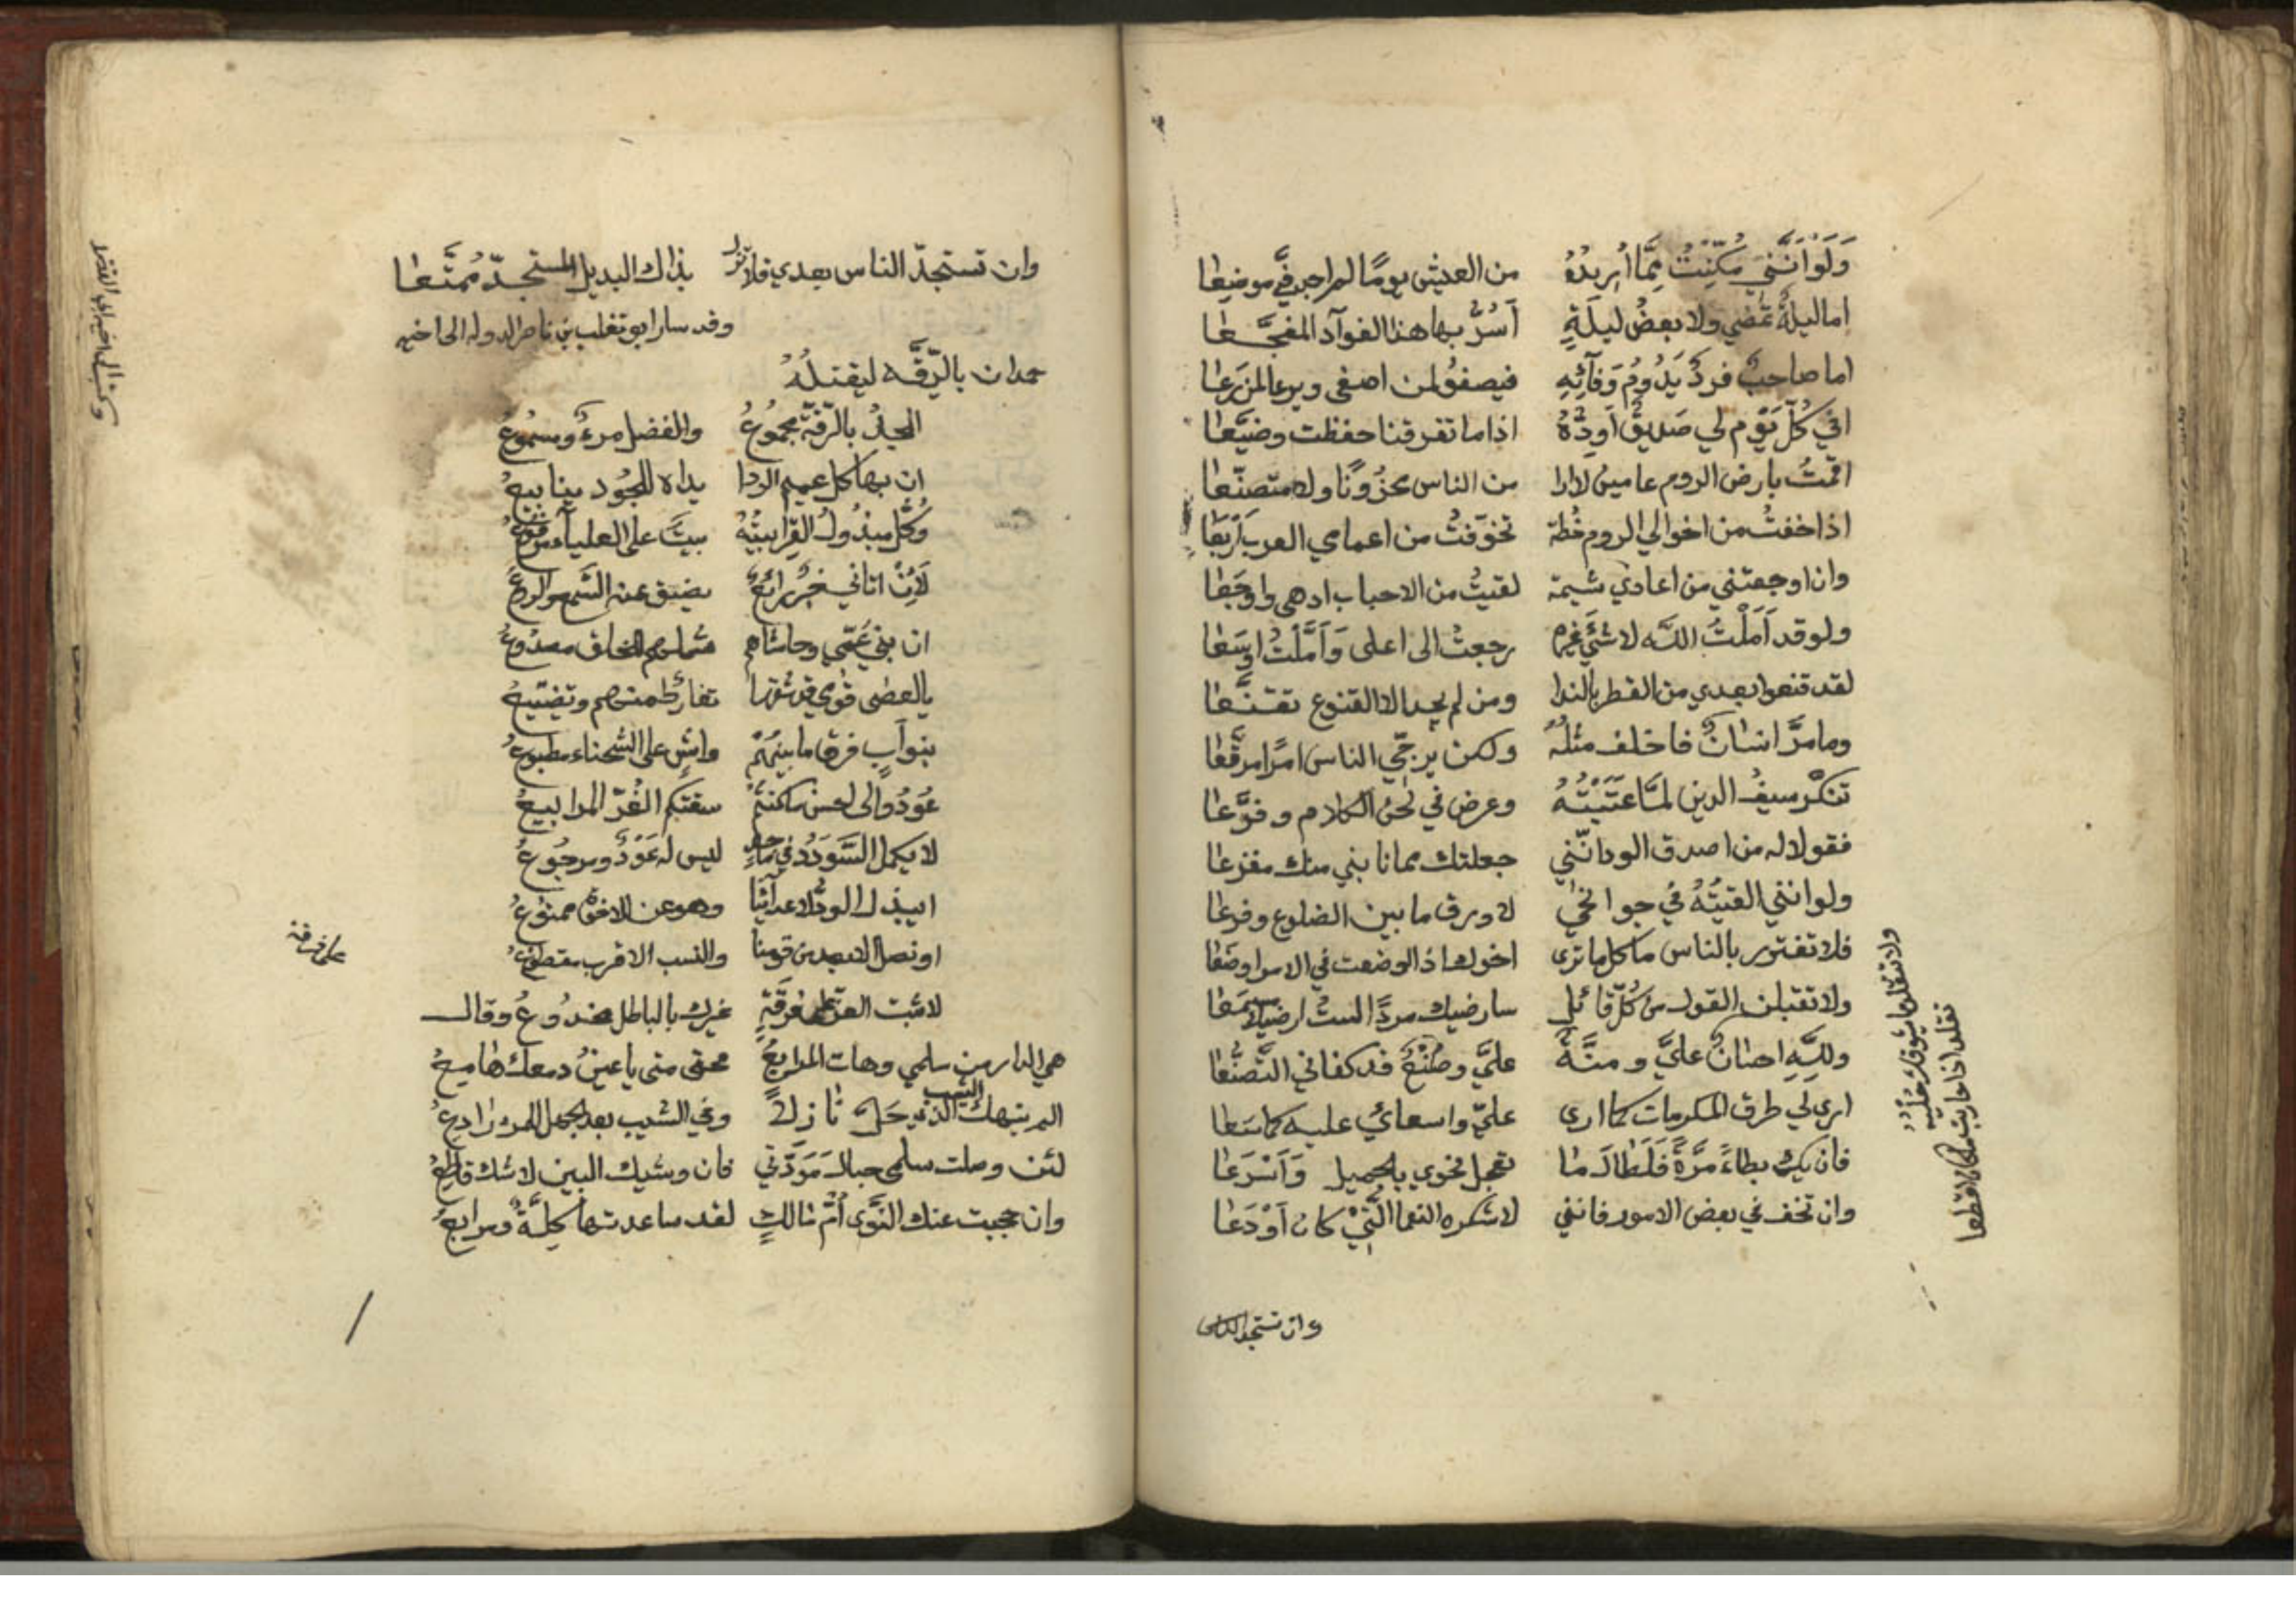 وَلَوْ اَنَّنِي مُكِّنْتُ مِمَّا أُرِيدُهُ من العيش يومًا لم اجد فيَّ موضعا
اما ليلةٌ تمضي ولا بعضُ ليلَةٍ اَسُرُّ بها هذا الفوآد المفجَّعا
اما صاحبٌ فردٌ يَدُومُ وَفآئِهِ فيصفوُ لمن اصفى ويرعا لمن رعا
افي كُلّ يَوْم لي صَديقٌ اَوَدُّهُ اذا ما تفرقنا حفظت وضيَّعا
اقمْتُ بارض الروم عامين لا ارا من الناس محزُونًا ولا متصنّعا
اذا خفتُ من اخوالي الروم خُطة تخوّفتُ من اعمامي العرب اَرْبَعَا
وان اوجعتني من اعادي شيمة لقيتُ من الاحباب ادهى واوجَعَا
ولو قد اَمَلْتُ اللّه لا شئَ غيره رجعتُ الى اعلى وَاَمَّلْتُ اوسَعَا
لقد قنعوا بعدي من القطر بالندا ومن لم يجد الا القنوع تقنَّعا
وما مرَّ انسانٌ فاخلف مثلُهُ ولكن يرجّي الناس امرًا مرقَّعا
تنكّر سيفُ الدين لمَّا عتَبْتُهُ وعرض في لحن الكلام وفرَّعا
فقولا له من اصدق الود انّني جعلتك مما نابني منك مفزعا
ولو انني القيتُهُ في جوانحي لاورق ما بين الضلوع وفرعا
فلا تغترر بالناس ما كل ما ترى اخوك اذا اوضعت في الامر اوضعا
ولا تقبلن القول من كُلّ قائل سارضيك مردًا لستُ ارضيك مسمعَا
وللّه احسانٌ عليَّ ومنَّةٌ عليَّ وصُنْعٌ قد كفاني التَّصنُّعا
اري لي طرق المكرمات كما ارى عليّ واسعاني عليه كما سَعا
فان يكُ بطاءً مرَّةً فَلَطَالَمَا تعجل نحوي بالجميل وَاَسْرَعا
وان تخف في بعض الامور فانني لاشكره النعما الَّتِيْ كان اَوْدَعا
ولا تتقلد ما يشوقك حليُهُ
تقلد اذا حاربت ما كان اقطعا
وان تستجد الناس
وان تستجدّ الناس بعدي فلا تزل بذاك البديل المستجدّ مُمتَّعا
وقد سار ابو تغلب بن ناصر الدوله الى اخيه
حمدان بالرّقّه ليقتلُهُ
المجدُ بالرّقّة مجموُعُ والفضل مرءيُ ومسموعُ
ان بها كل عميم الندا يداه للجُود ينابيعُ
وَكُلّ مبذُولُ القِرا بيتُهُ بيتٌ على العليآء مرفوعُ
لَاِنْ اتاني خبرٌ رائعٌ يضيق عنه السَّمع والروعُ
ان بني عَمّي وحاشاهم شملهم بالخلف مصدُوعُ
بنو اَبٍ فرق ما بينهُمْ واشٍ على الشحناء مطبوعُ
عُودُوا الى احسن ما كنتمُ سقتكم الغُرّ المرابيعُ
لا يكمل السَّودَدُ في ماجدٍ ليس له عَوْدٌ ومرجُوعُ
ايبذل الودُّ لاعدآئنا وهو عن الاخوة ممنوعُ
او نصل الابعد من قومنا والنسب الاقرب مقطوعُ
على فرقة
لا ثبت العز على فرقَةٍ غيرك بالباطل مخدُوعُ وقال
هي الدار من سلمى وهات المرابعُ محتى متى يا عينُ دمعك هامعُ
الم ينهك الشيب الذي حَلّ نازلاً وفي الشيب بعد الجهل للمرء رادعُ
لئن وصلت سلمى حبال مَوَدّتي فان وشيك البين لا شك قاطعُ
وان حجبت عنك النَّوَى اُمّ مالكٍ لقد ساعدتها كِلَّةٌ وبراقعُ